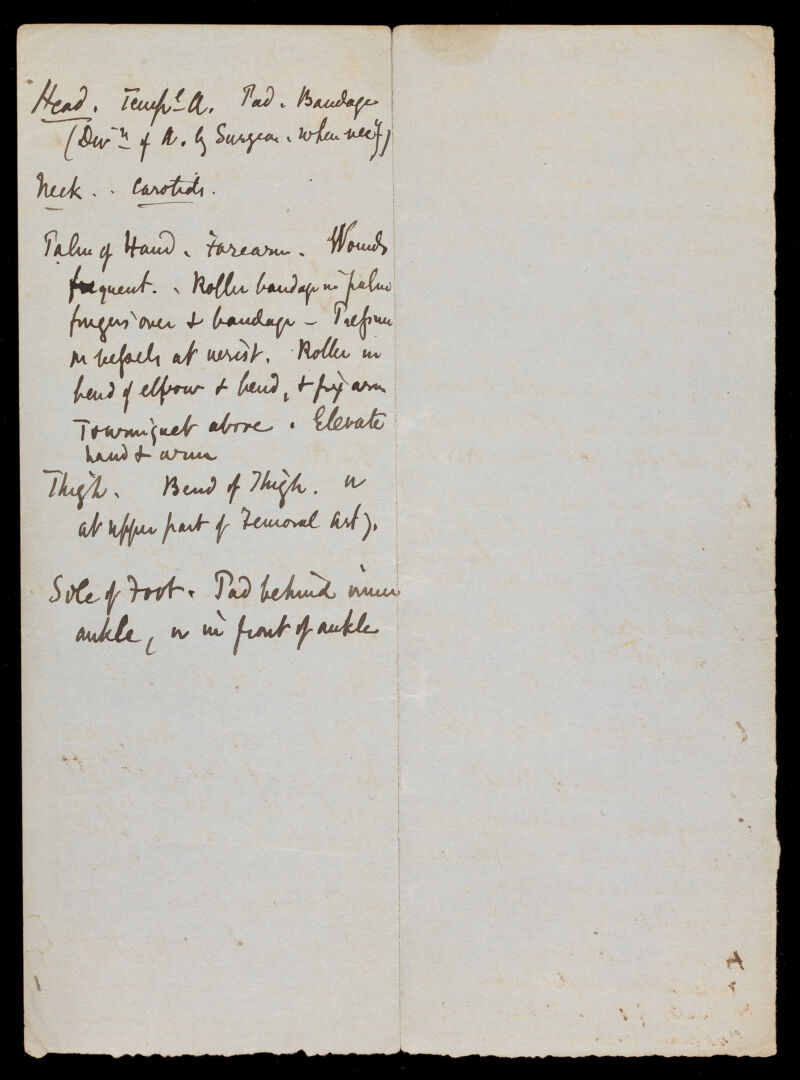 Head. Templ A. Pad. Bandage
(Divn of A. by Surgeon. when necy)
Neck. . Carotids.
Palm of Hand. Forearm. Wounds
frequent. . Roller bandage in palm
fingers over & bandage – Pressure
on vessels at wrist. Roller in
bend of elbow & bend, & fix arm
Tourniquet above. Elevate
hand & arm
Thigh. Bend of Thigh. or
at upper part of Femoral Art).
Sole of Foot. Pad behind inner
ankle, or in front of ankle